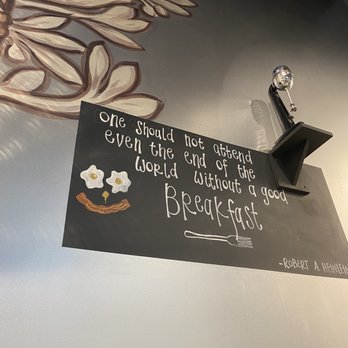 One should not attend
even the end of the
world without a good
Breakfast
-ROBERT A HEINLEIN